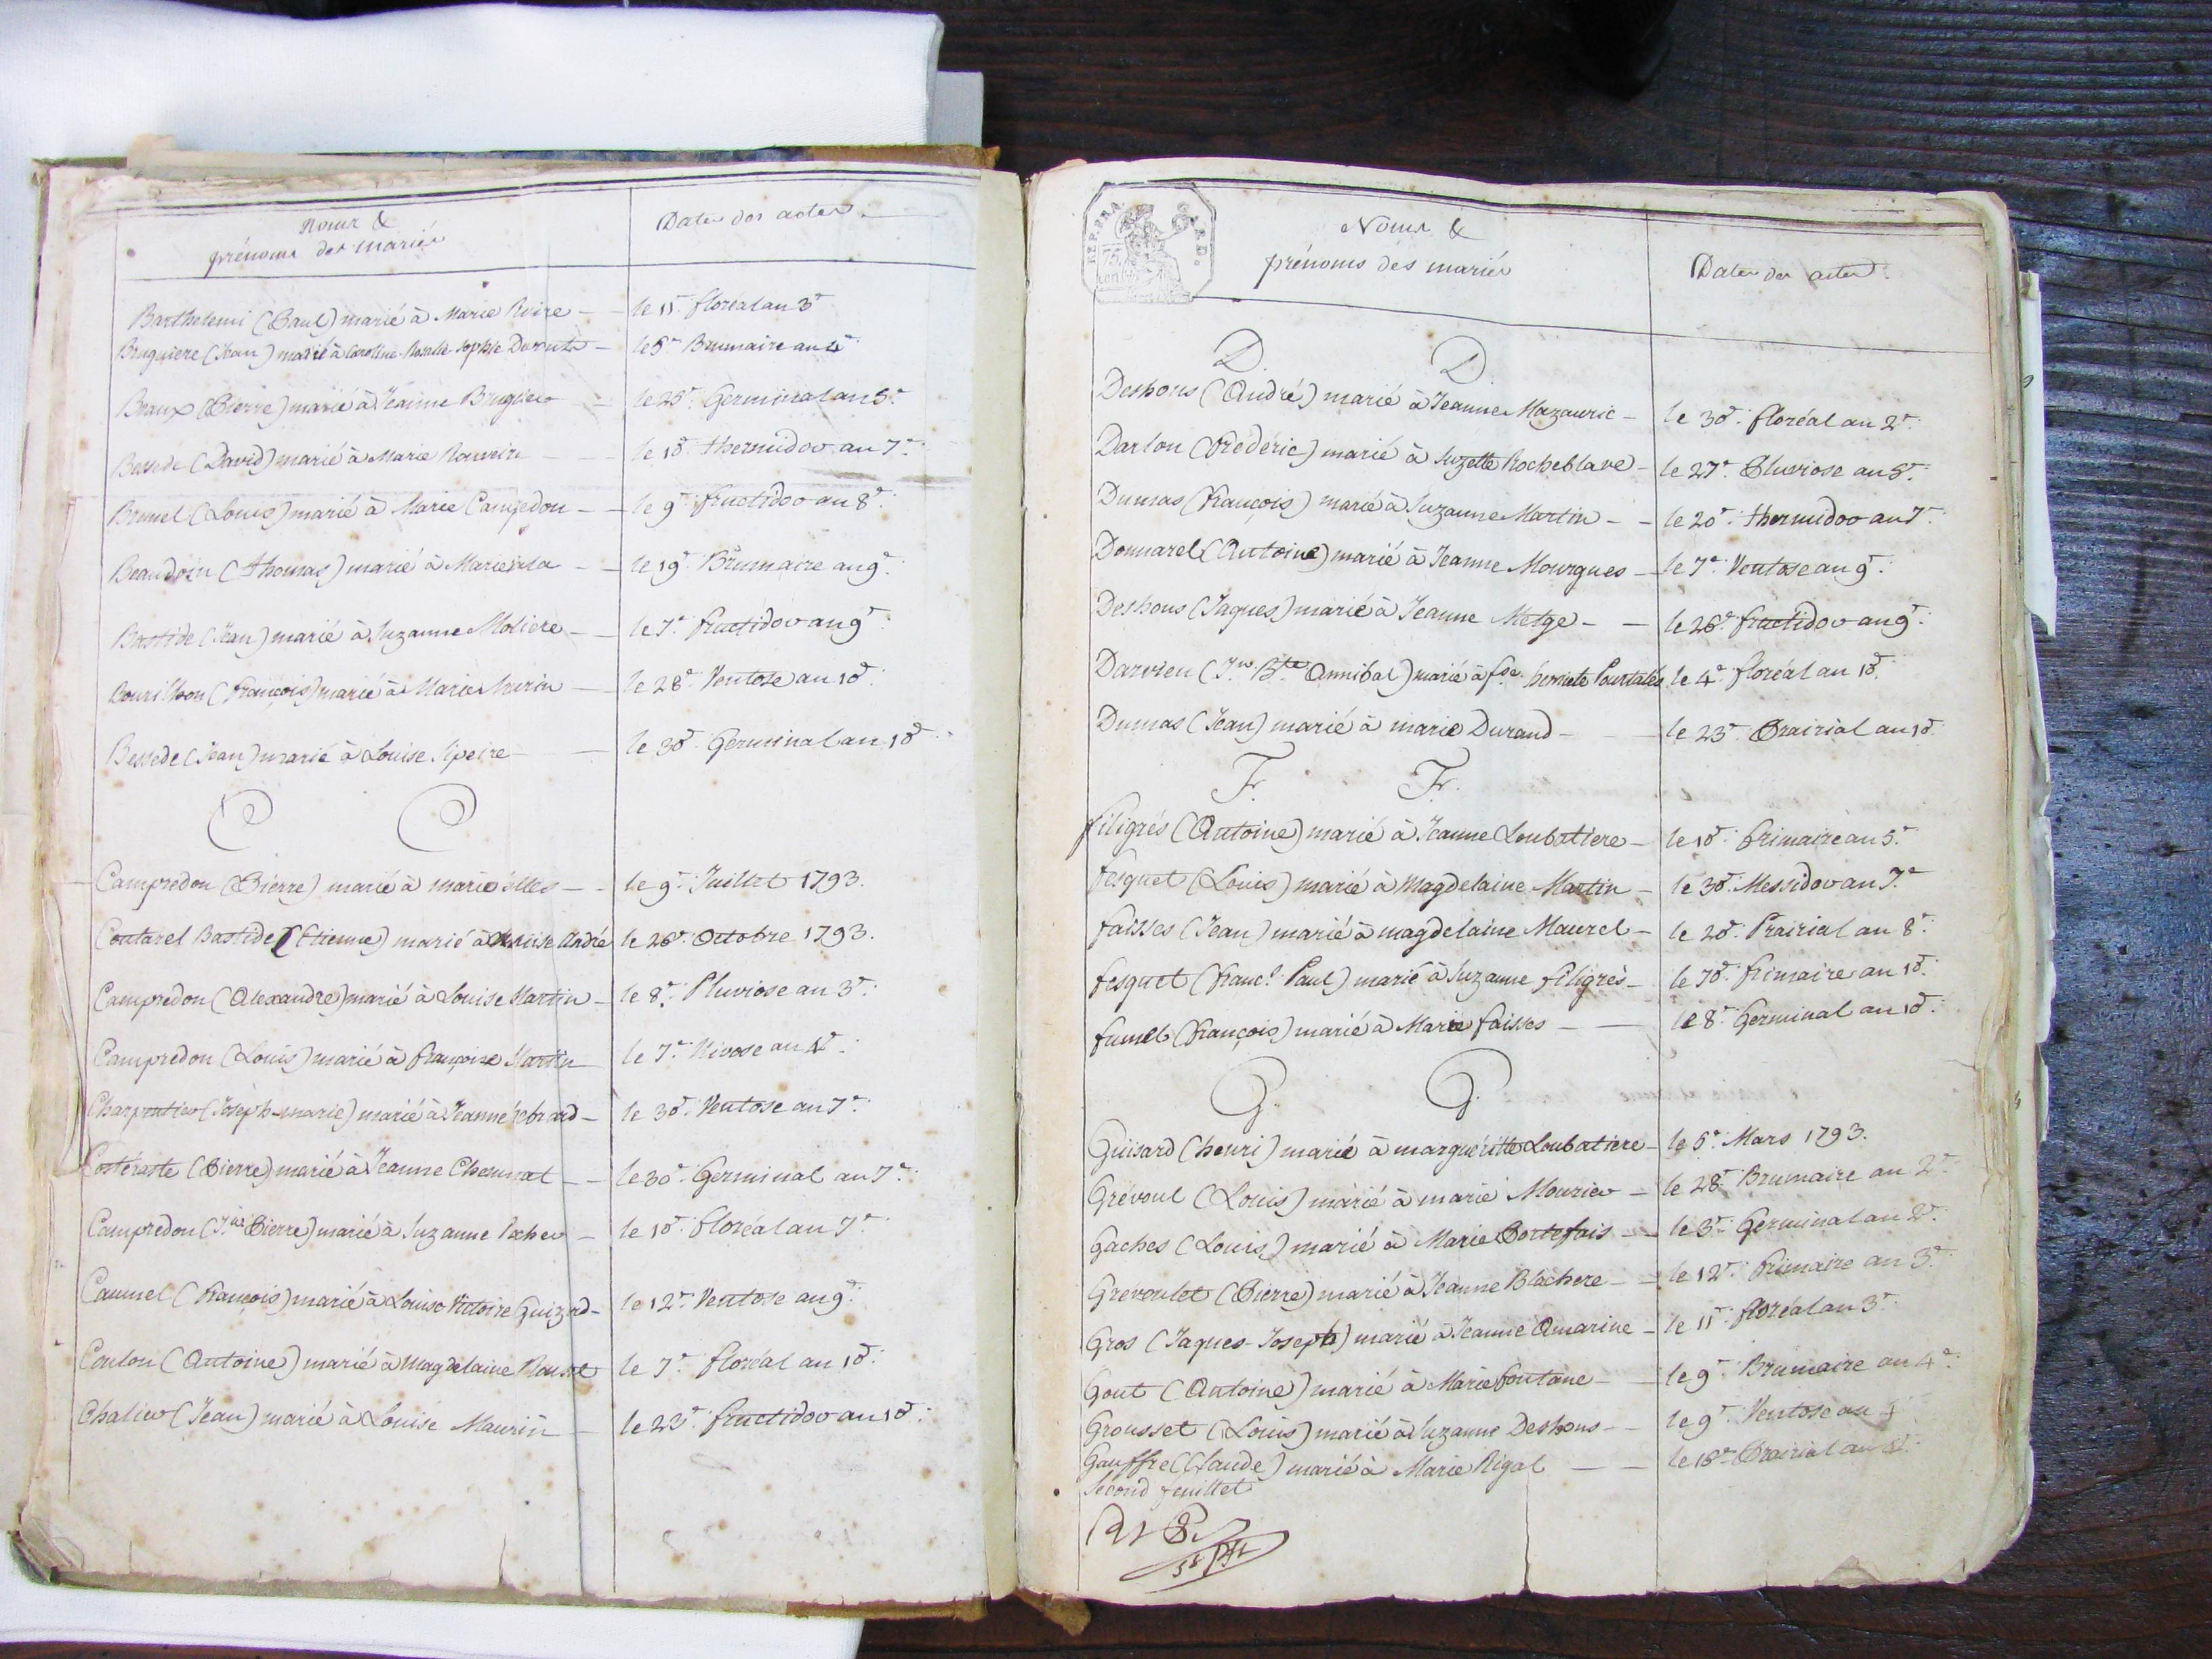 Noms &
prénoms des mariés
Date des actes.
Barthelemi (Paul) marié à Marie Roire — le 11e floréal an 3e
Bruguiere (Jean) marié à Caroline-Rosalie-Sophie — le 5e Brumaire an 4e
Beaux (Pierre) marié à Jeanne Brugier — le 25e Germinal an 5e.
Bessede (David) marié à Marie — le 10e thermidor an 7e.
Brunel (Louis) marié à Marie Campedon — le 9e fructidor an 8e.
Beaudoin (thomas) marié à Marie — le 19e Brumaire an 9e.
Bastide (Jean) marié à Suzanne Moliere — le 7e fructidor an 9e.
Bourilhon (françois) marié à Marie — le 28e Ventose an 10e.
Bessede (Jean) marié à Louise Sipeire — le 30e Germinal an 10e.
C C
Campredon (Pierre) marié à marie — le 9e Juillet 1793.
Coutarel Bastide (Etienne) marié à Louise André le 26e Octobre 1793.
Campredon (Alexandre) marié à Louise Martin — le 8e Pluviose an 3e.
Campredon (Louis) marié à françoise Martin le 7e Nivose an 4e.
Charpentier (Joseph-marie) marié à Jeanne hebrard — le 30e Ventose an 7e.
Costeraste (Pierre) marié à Jeanne — le 30e Germinal an 7e.
Campredon (Pierre) marié à Suzanne — le 10e floréal an 7e.
Caumel (françois) marié à Louise Victoire Guizard — le 12e Ventose an 9e.
Coulon (Antoine) marié à Magdelaine le 7e floréal an 10e.
Chalier (Jean) marié à Louise Maurin — le 23e fructidor an 10e.
REP. FRA.
75
cent
Noms &
prénoms des mariés
Date des actes.
D. D.
Deshons (André) marié à Jeanne Mazauric — le 30e floréal an 2e.
Darlon (frédéric) marié à Suzette Rocheblave — le 27e Pluviose an 5e.
Dumas (françois) marié à Suzanne Martin — le 20e thermidor an 7e.
Donnarel (Antoine) marié à Jeanne Mourgues — le 7e Ventose an 9e.
Deshons (Jaques) marié à Jeanne Metge — le 26e fructidor an 9e.
Darvieu (Jn. Bte Annibal) marié à fse. henriete Pourtalés le 4e floréal an 10e.
Dumas (Jean) marié à marie Durand — le 23e Prairial an 10e.
F. F.
filigrés (Antoine) marié à Jeanne Loubatiere — le 10e frimaire an 5e.
fesquet (Louis) marié à Magdelaine Martin — le 30e Messidor an 7e.
faisses (Jean) marié à magdelaine Maurel — le 20e Prairial an 8e.
fesquet (franc.s Paul) marié à Suzanne filigrés — le 30e frimaire an 10e.
fumel (françois) marié à Marie faisses — le 8e Germinal an 10e.
G. G.
Guisard (henri) marié à marguéritte Loubatiere — le 5e Mars 1793.
Grévoul (Louis) marié à marie Mourier — le 28e Brumaire an 2e.
Gaches (Louis) marié à Marie Portefais — le 3e Germinal an 2e.
Grévoulet (Pierre) marié à Jeanne Blachere — le 12e frimaire an 3e.
Gros (Jaques-Joseph) marié à Jeanne Amarine — le 11e floréal an 3e.
Gout (Antoine) marié à Marie fontane — le 9e Brumaire an 4e.
Grousset (Louis) marié à Suzanne Deshons — le 9e Ventose an
Gauffre (Claude) marié à Marie Rigal — le 18e Prairial an
Second feuillet